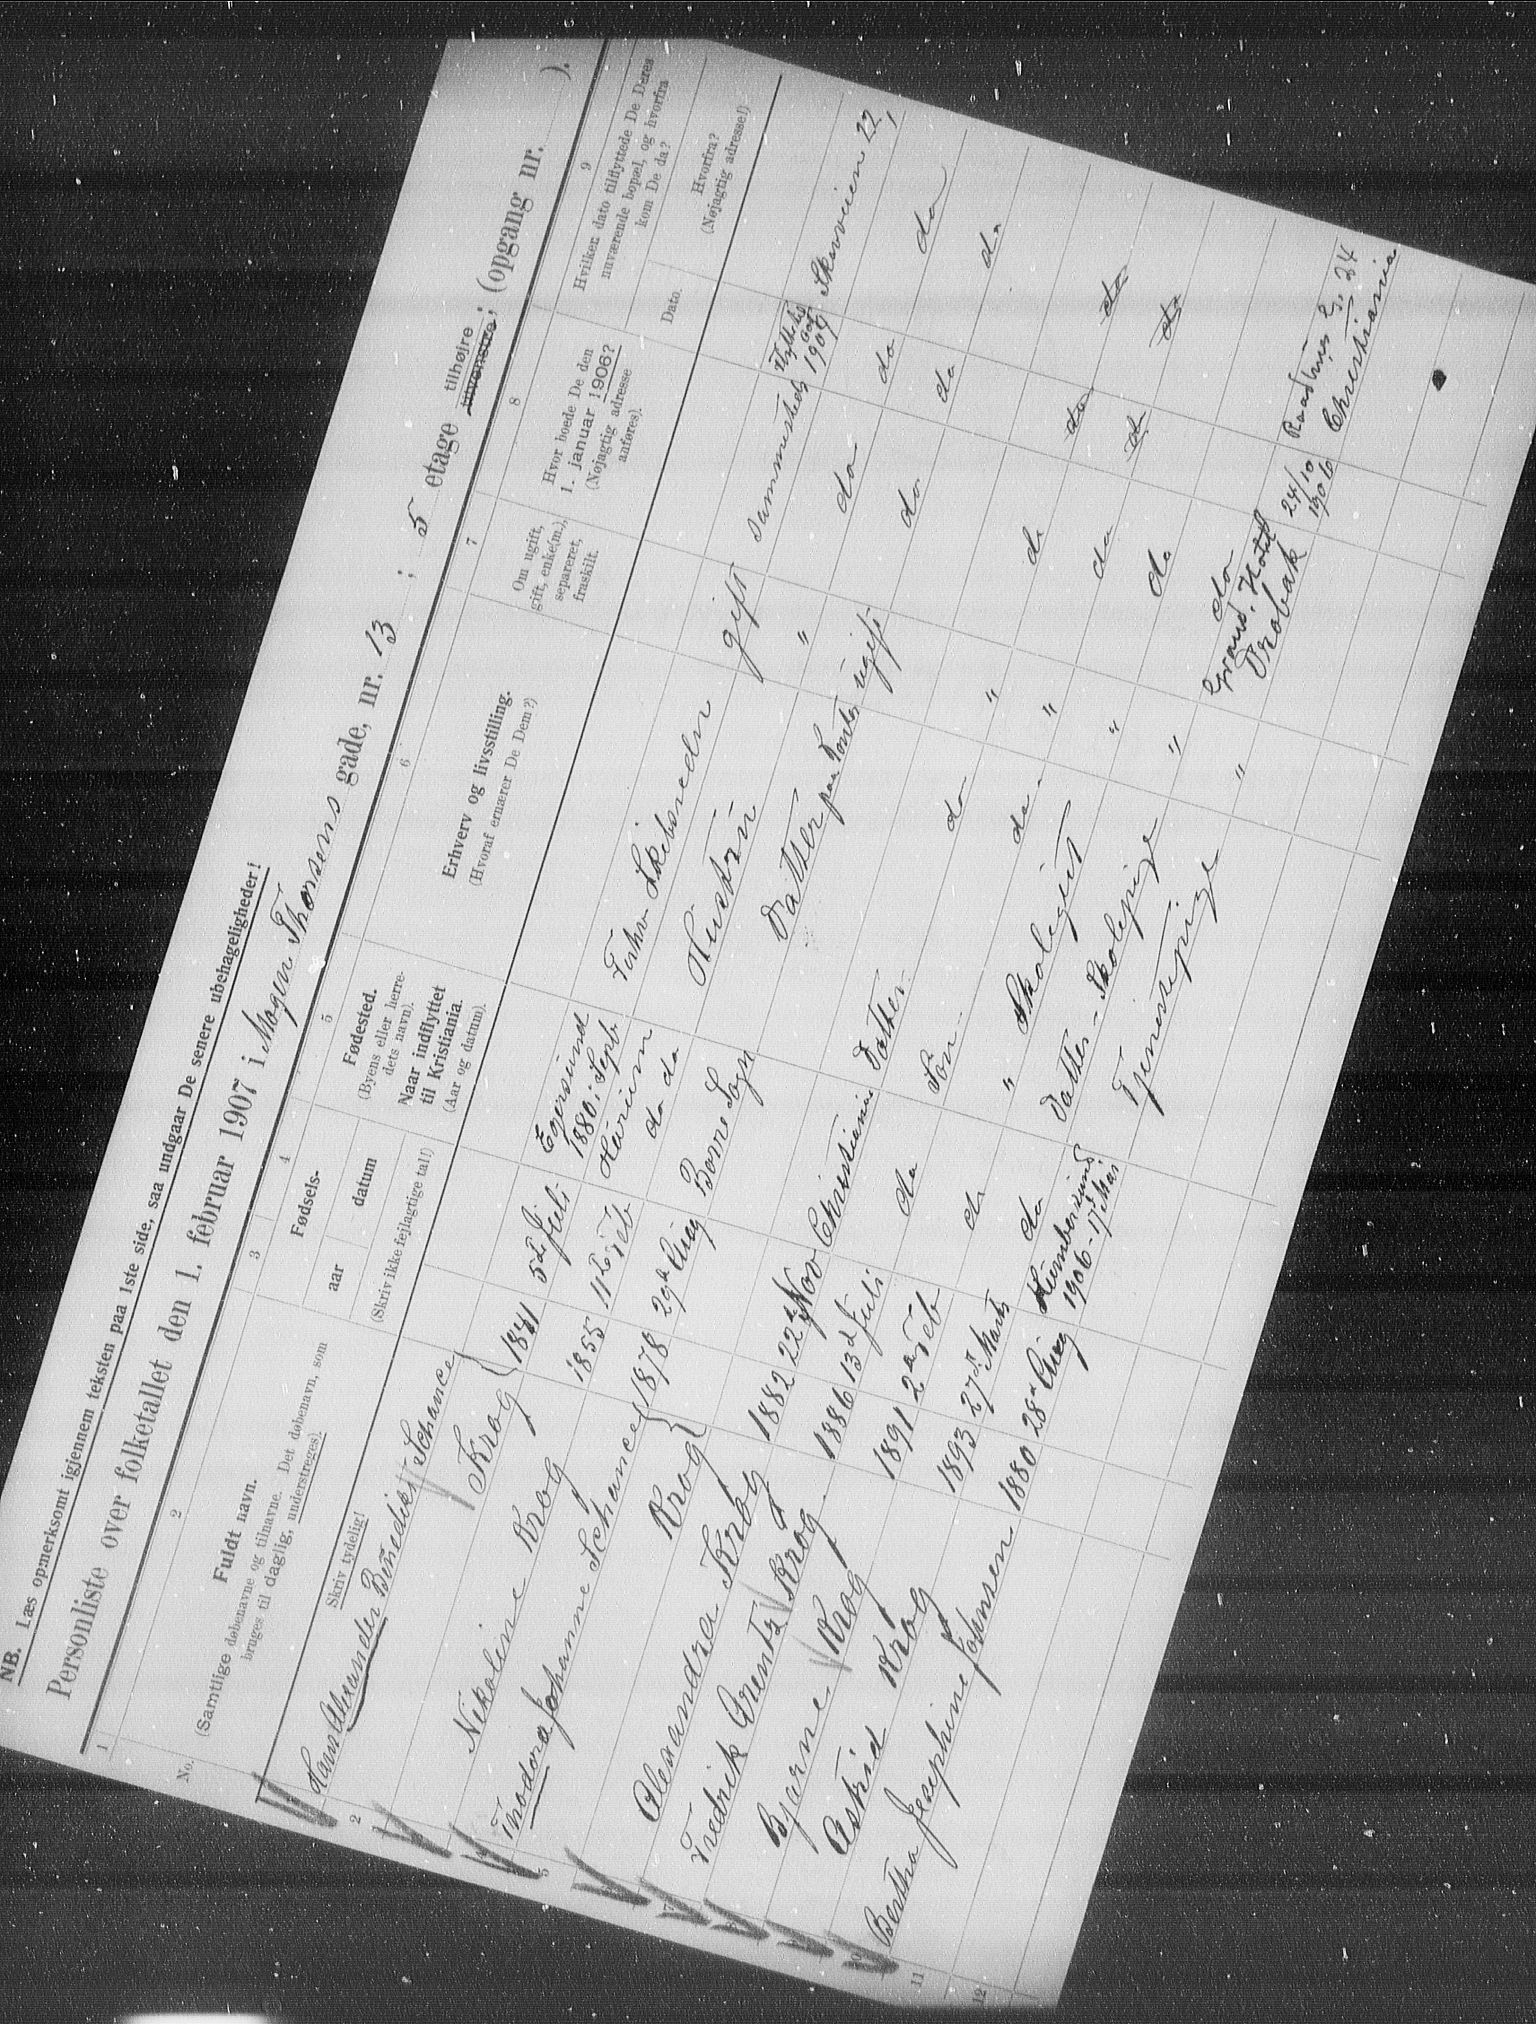 NB. Læs opmerksomt igjennem teksten paa 1ste side, saa undgaar De senere ubehageligheder!
Personliste over folketallet den 1. februar 1907 i Mogens Thorsens gade, nr. 13 ; 5 etage tilhøjre tilvenstre; (opgang nr. ).
1 2 3 4 5 6 7 8 9
No.
Fuldt navn.
(Samtlige døbenavne og tilnavne. Det døbenavn, som
bruges til daglig, understreges).
Skriv tydelig!
Fødsels-
aar datum
(Skriv ikke fejlagtige tal!)
Fødested.
(Byens eller herre-
dets navn).
Naar indflyttet
til Kristiania.
(Aar og datum).
Erhverv og livsstilling.
(Hvoraf ernærer De Dem?)
Om ugift,
gift, enke(m.),
separeret,
fraskilt.
Hvor boede De den
1. januar 1906?
(Nøjagtig adresse
anføres).
Hvilken dato tilflyttede De Deres
nuværende bopæl, og hvorfra
kom De da?
Dato.
Hvorfra?
(Nøjagtig adresse!)
Hans Alexander Benedikt Schance
Krog 1841 5te Juli Egersund 1880 i Septb. Skibsreder gift sammesteds 1909 22,
2 Nikoline Krog 1855 11te Feb Hurum do do Hustru " do do do
Thodora Johanne Schance
5 Krog 1878 29de Aug Borre Sogn Datter paa Contor ugift do do do
Alexandra Krog 1882 22de Nov Christiania Datter do " do do do
Fredrik Grentz Krog 1886 13d Juli do Sön do " do do do
Bjarne Krog 1891 2de Feb do " Skolegut " do
Astrid Krog 1893 27de Marts do Datter Skolepige " do
Bertha Josephine Johnsen 1880 28de Aug 1906 - 17de Mai Tjenestepige " Grand Hotel Drobak 24/10 1906 Raadhus G. 24 Christiania
11
12